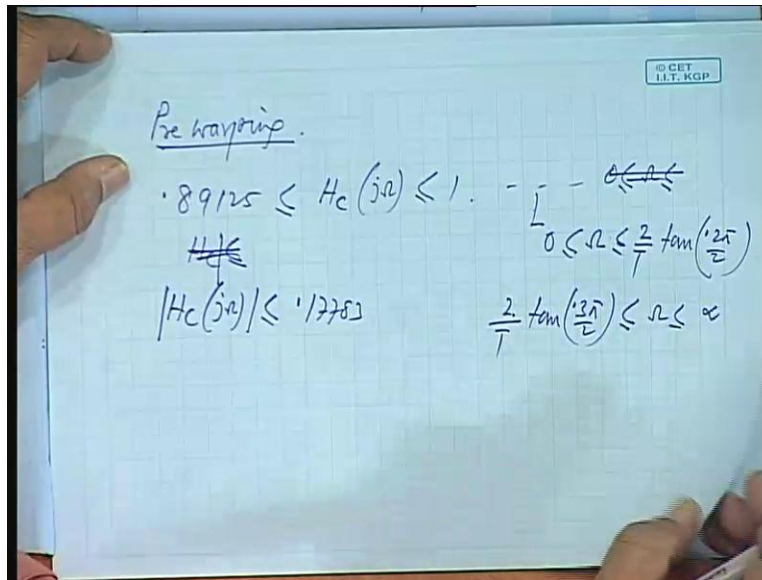 © CET
I.I.T. KGP
Pre warping.
.89125 ≤ Hc (jΩ) ≤ 1. - - - 0 ≤ Ω ≤
0 ≤ Ω ≤ 2/T tan(.2π/2)
H ≤
|Hc (jΩ)| ≤ .17783 2/T tan(.3π/2) ≤ Ω ≤ ∝